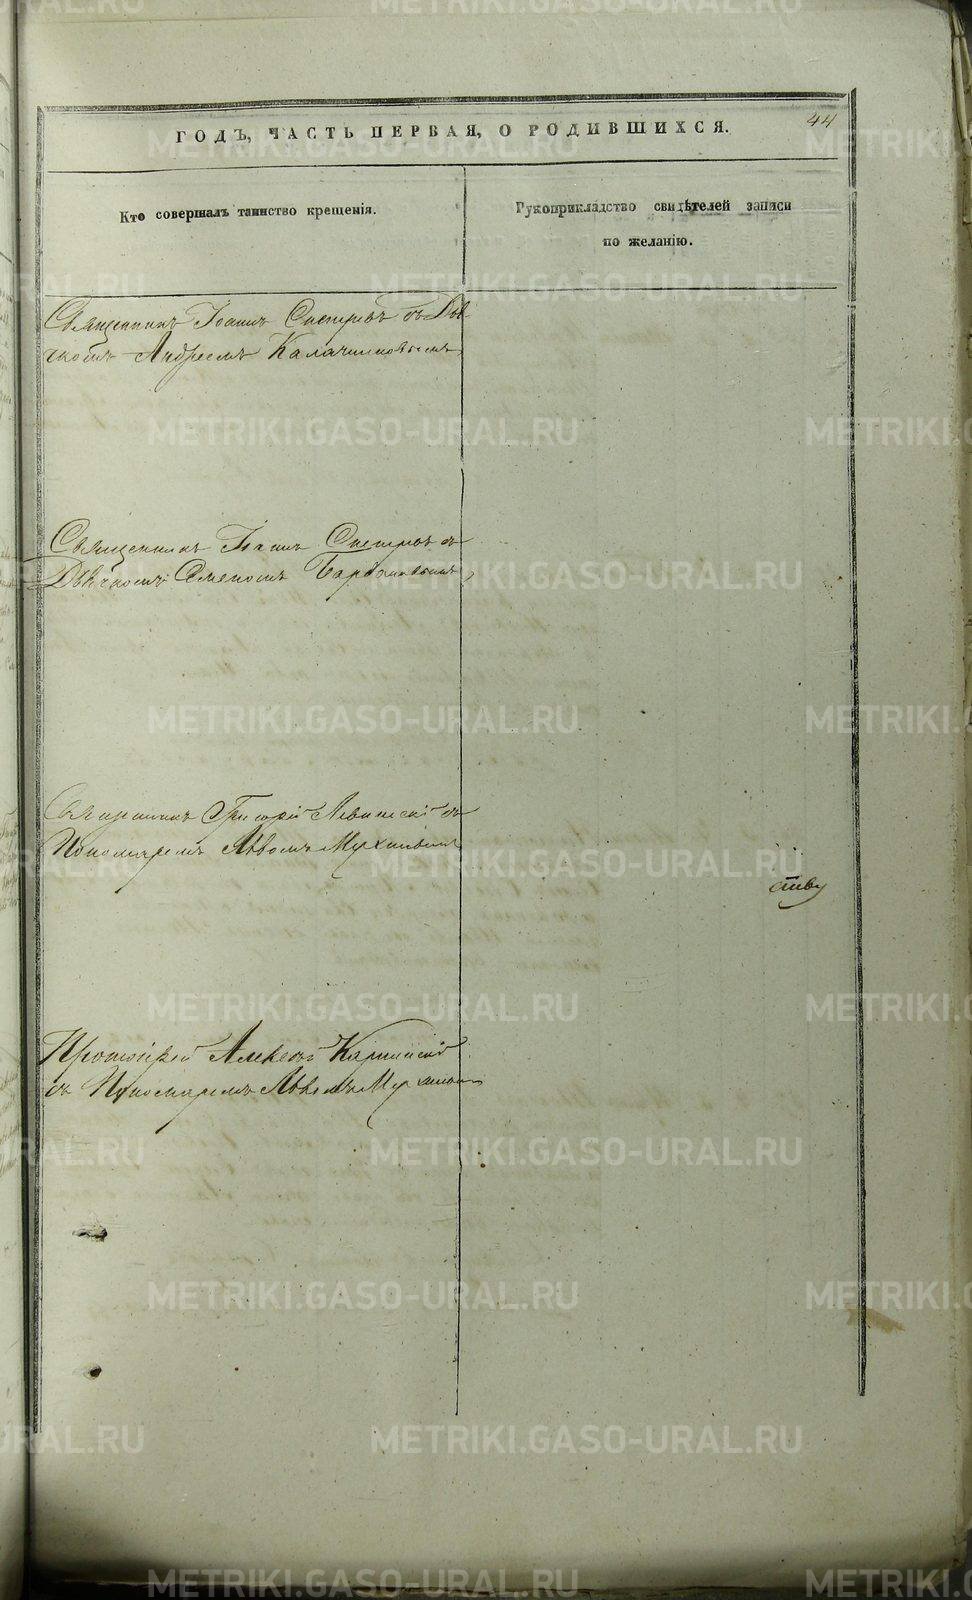 44
ГОДЪ, ЧАСТЬ ПЕРВАЯ, О РОДИВШИХСЯ.
Кто совершалъ таинство крещенія.
Рукоприкладство свидѣтелей записи
по желанію.
Священникъ Іоаннъ съ Дья-
чкомъ Андреемъ Калачниковымъ
Священникъ Іоаннъ съ
Дьячкомъ Семеномъ
Священникъ Григорій Левитскій съ
Пономаремъ Львомъ
ству
Протоіерей Алексѣй Карпинскій
съ Пономаремъ Львомъ
METRIKI.GASO-URAL.RU